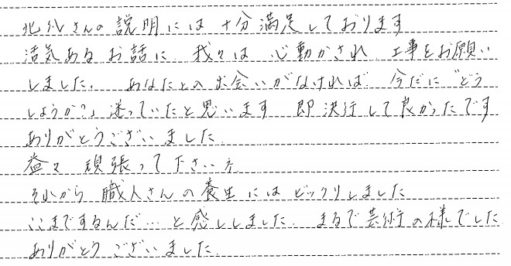 北代さんの説明には十分満足しております
活気あるお話に 我々は 心動かされ 工事をお願い
しました。 あなたとの出会いがなければ 今だに "どう
しようか?" 迷っていたと思います 即決行して良かったです
ありがとうございました
益々 頑張って下さいネ
それから 職人さんの養生にはビックリしました
ここまでするんだ… と感じしました。まるで芸術の様でした
ありがとうございました